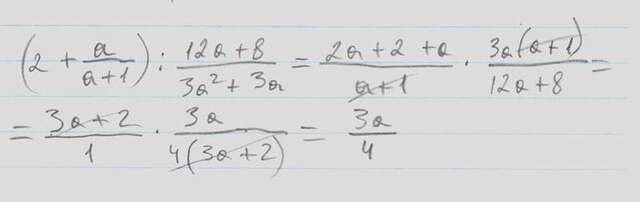 (2 + a/(a+1)) : (12a+8)/(3a²+3a) = (2a+2+a)/(a+1) · (3a(a+1))/(12a+8) =
= (3a+2)/1 · 3a/(4(3a+2)) = 3a/4